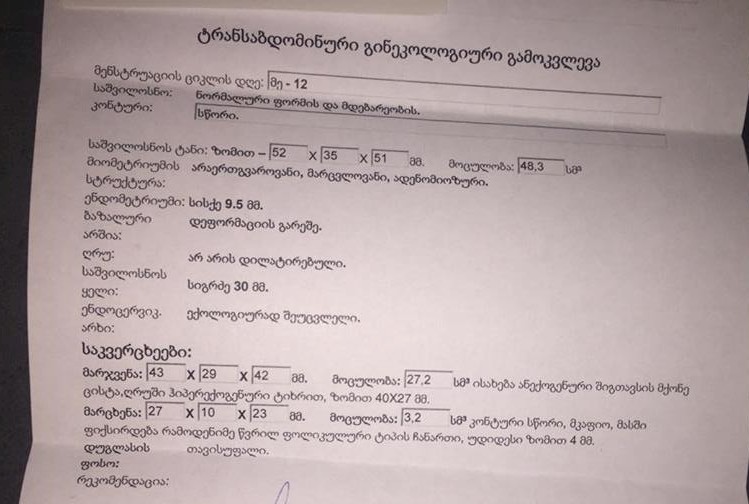 ტრანსაბდომინური გინეკოლოგიური გამოკვლევა
მენსტრუაციის ციკლის დღე: მე - 12
საშვილოსნო: ნორმალური ფორმის და მდებარეობის.
კონტური: სწორი.
საშვილოსნოს ტანი: ზომით – 52 X 35 X 51 მმ. მოცულობა: 48,3 სმ³
მიომეტრიუმის არაერთგვაროვანი, მარცვლოვანი, ადენომიოზური.
სტრუქტურა:
ენდომეტრიუმი: სისქე 9.5 მმ.
ბაზალური დეფორმაციის გარეშე.
არშია:
ღრუ: არ არის დილატირებული.
საშვილოსნოს
ყელი: სიგრძე 30 მმ.
ენდოცერვიკ. ექოლოგიურად შეუცვლელი.
არხი:
საკვერცხეები:
მარჯვენა: 43 X 29 X 42 მმ. მოცულობა: 27,2 სმ³ ისახება ანექოგენური შიგთავსის მქონე
ცისტა,ღრუში ჰიპერექოგენური ტიხრით, ზომით 40X27 მმ.
მარცხენა: 27 X 10 X 23 მმ. მოცულობა: 3,2 სმ³ კონტური სწორი, მკაფიო, მასში
ფიქსირდება რამოდენიმე წვრილ ფოლიკულური ტიპის ჩანართი, უდიდესი ზომით 4 მმ.
დუგლასის თავისუფალი.
ფოსო:
რეკომენდაცია: